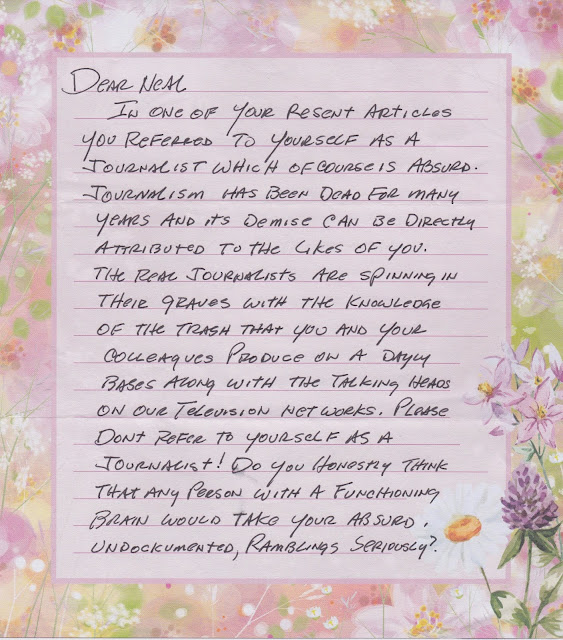 Dear Neal
In one of your resent articles
you referred to yourself as a
journalist which of course is absurd.
Journalism has been dead for many
years and its demise can be directly
attributed to the likes of you.
The real journalists are spinning in
their graves with the knowledge
of the trash that you and your
colleagues produce on a dayly
bases along with the talking heads
on our television networks. Please
dont refer to yourself as a
journalist! Do you honestly think
that any person with a functioning
brain would take your absurd,
undockumented, ramblings seriously?